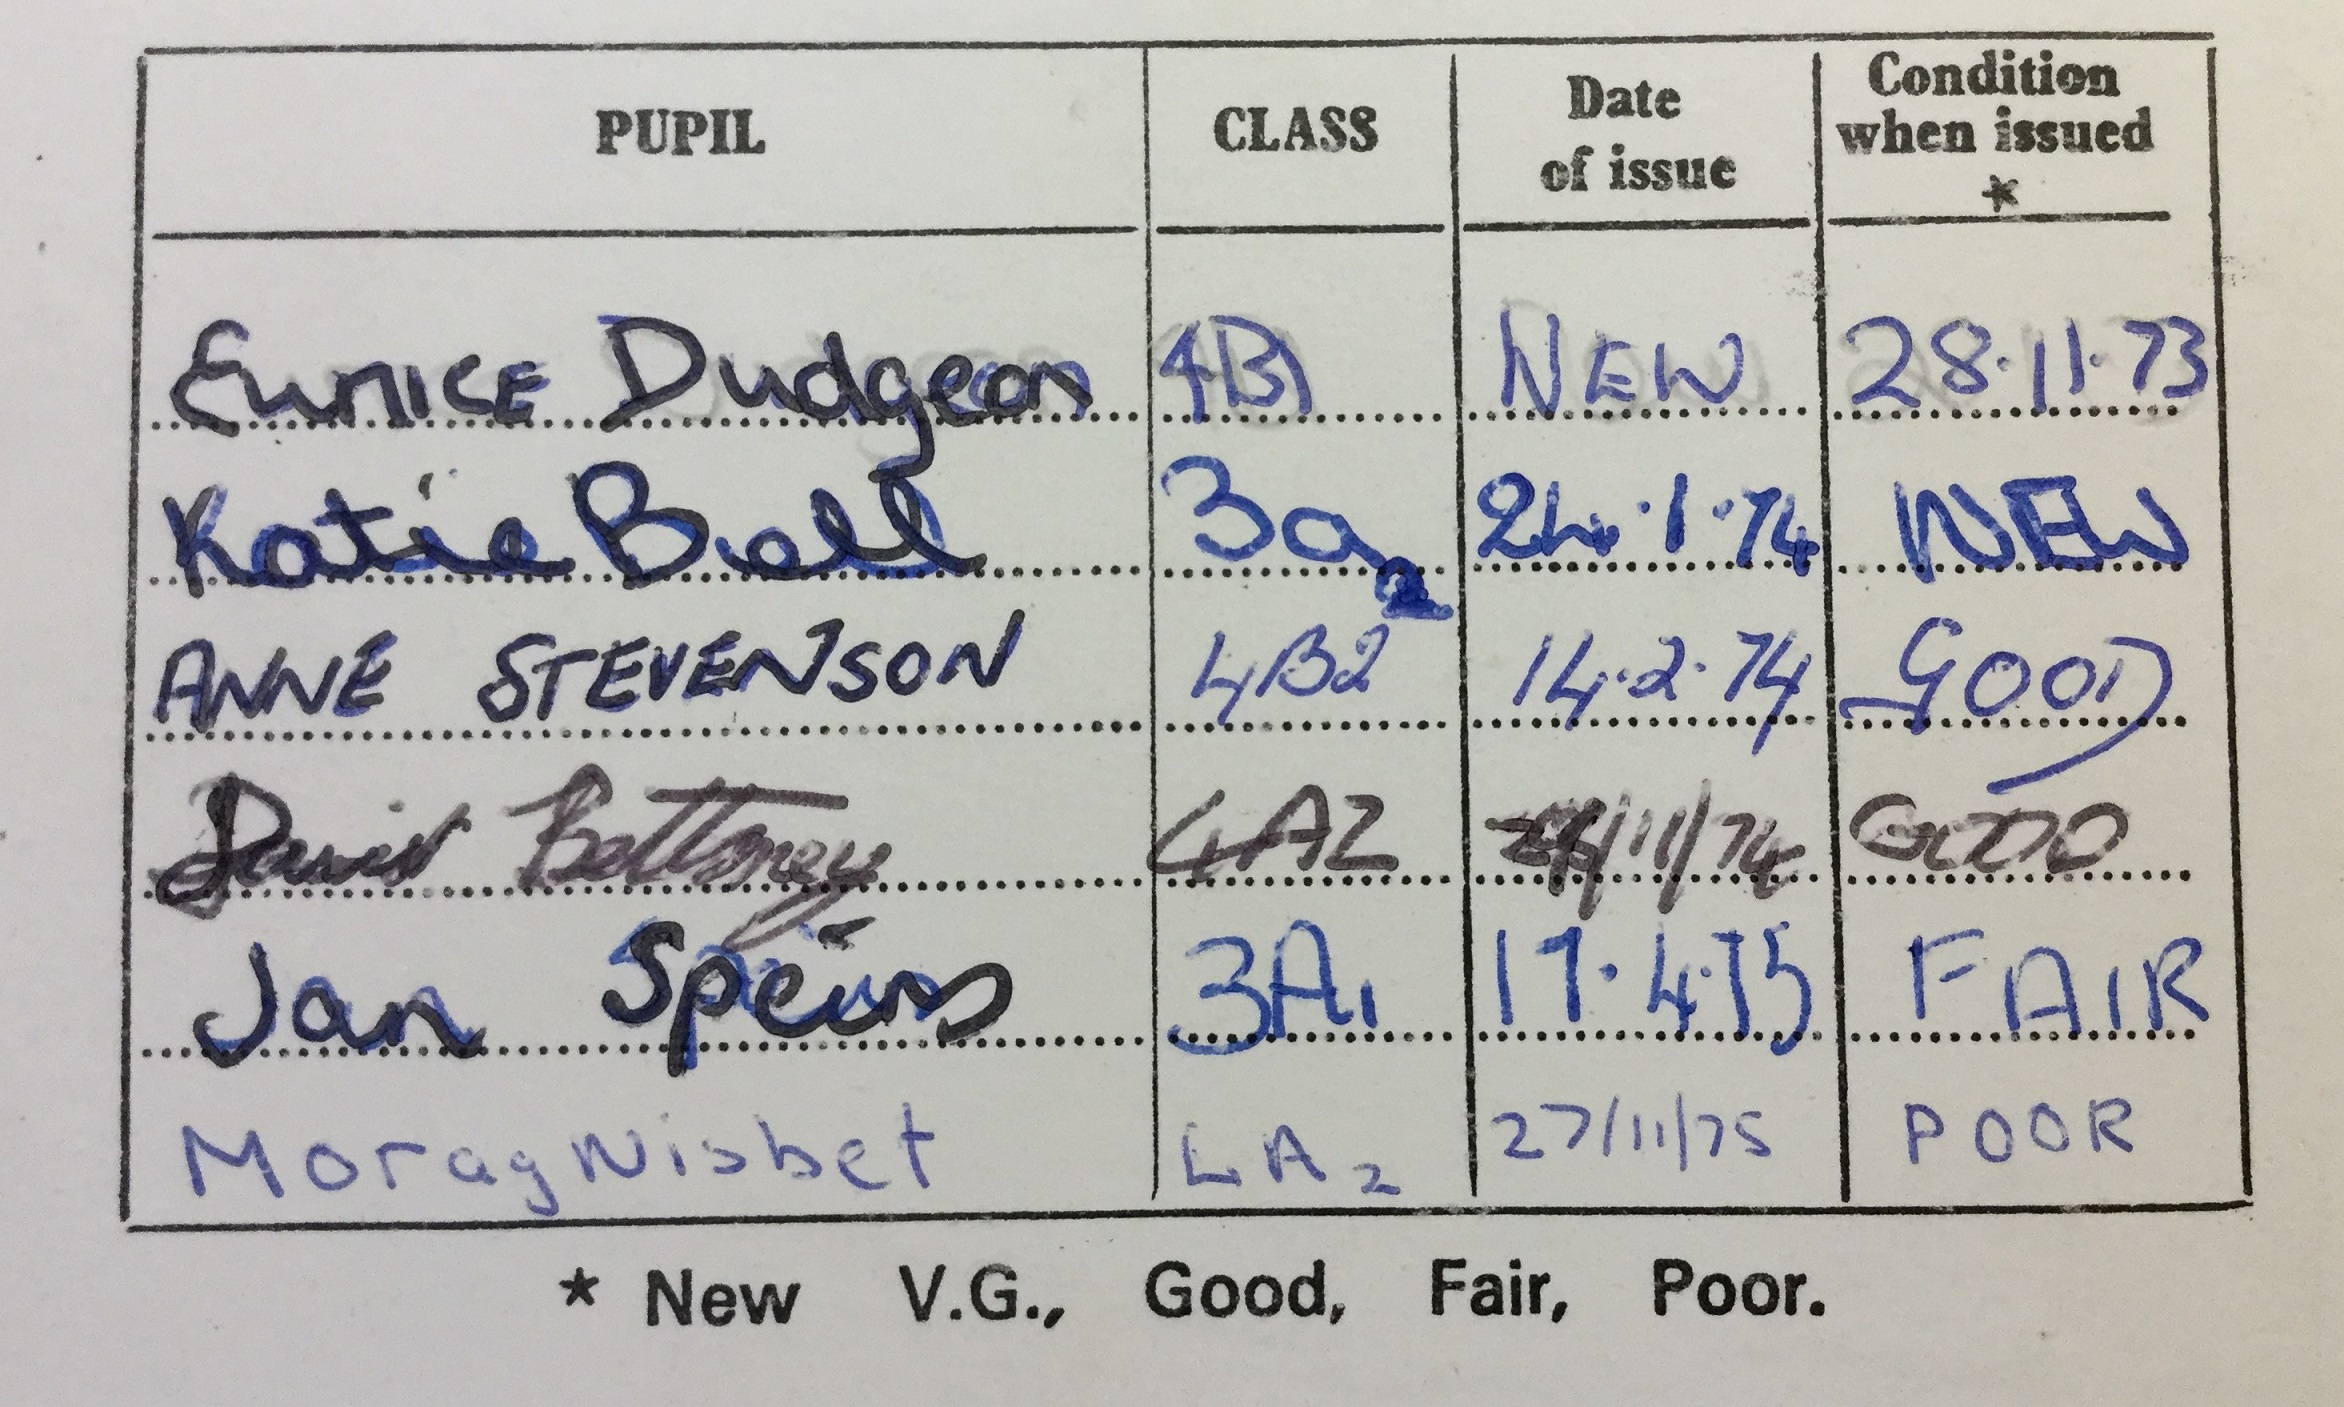 PUPIL CLASS Date of issue Condition when issued *
Eunice Dudgeon 4B1 NEW 28.11.73
Katie Bell 3a2 24.1.74 NEW
ANNE STEVENSON 4B2 14.2.74 GOOD
David 4A2 /11/74 GOOD
Jan Speirs 3A1 17.4.75 FAIR
Morag Nisbet 4A2 27/11/75 POOR
* New V.G., Good, Fair, Poor.